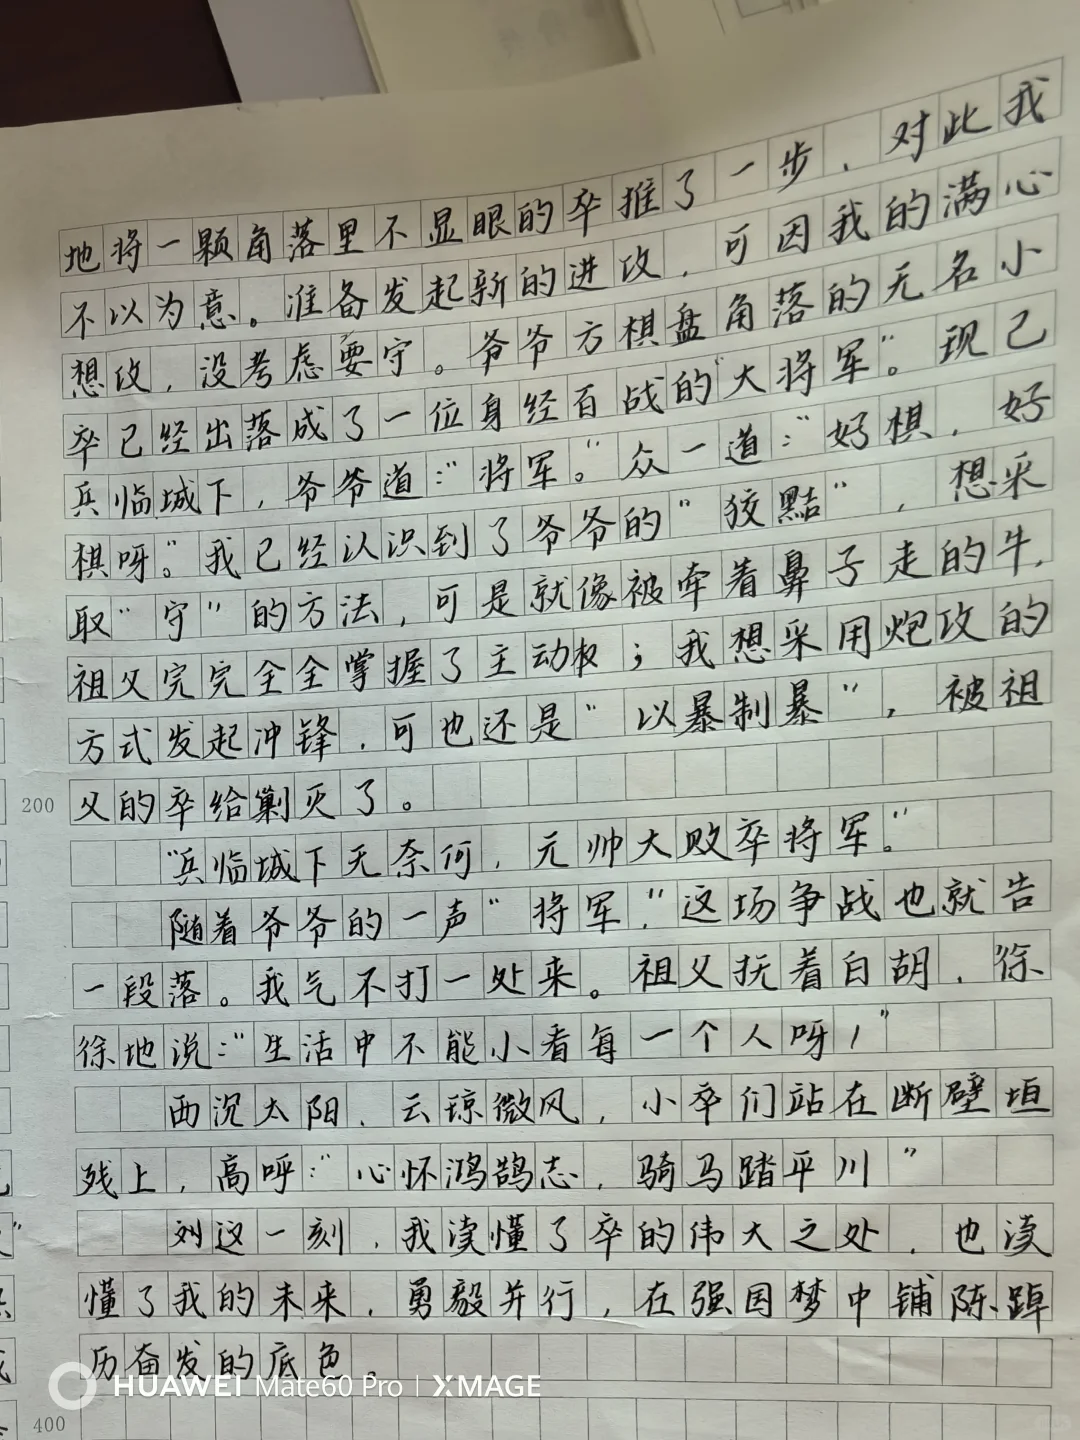 地将一颗角落里不显眼的卒推了一步，对此我
不以为意。准备发起新的进攻，可因我的满心
想攻，没考虑要守。爷爷方棋盘角落的无名小
卒已经出落成了一位身经百战的“大将军”。现已
兵临城下，爷爷道：“将军。”众一道：“好棋，好
棋呀。”我已经认识到了爷爷的“狡黠”，想采
取“守”的方法，可是就像被牵着鼻子走的牛，
祖父完完全全掌握了主动权；我想采用炮攻的
方式发起冲锋，可也还是“以暴制暴”，被祖
200 父的卒给剿灭了。
“兵临城下无奈何，元帅大败卒将军。”
随着爷爷的一声“将军，”这场争战也就告
一段落。我气不打一处来。祖父抚着白胡，徐
徐地说：“生活中不能小看每一个人呀！”
西沉太阳，云琼微风，小卒们站在断壁垣
残上，高呼：“心怀鸿鹄志，骑马踏平川”
到这一刻，我读懂了卒的伟大之处，也读
懂了我的未来，勇毅并行，在强国梦中铺陈踔
历奋发的底色。
HUAWEI Mate60 Pro | XMAGE
400